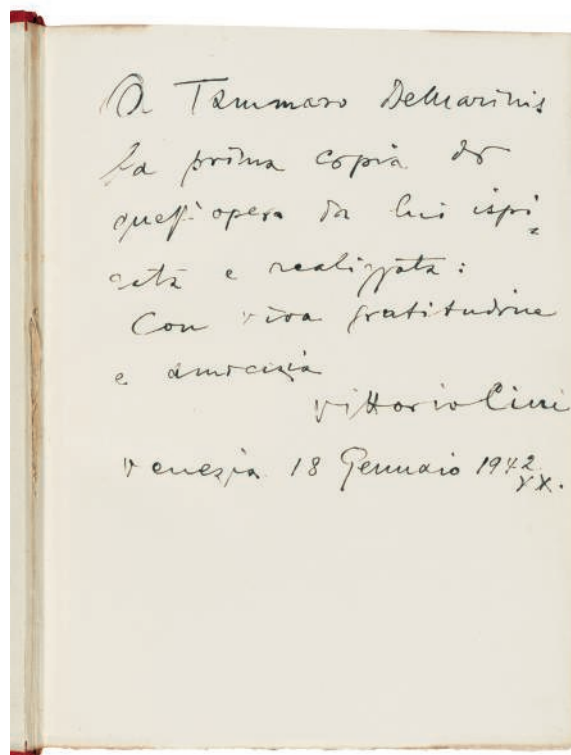 A Tammaro DeMarinis
la prima copia di
quest'opera da lui ispi=
rata e realizzata:
Con viva gratitudine
e amicizia
Vittorio Cini
Venezia 18 Gennaio 1942
XX.